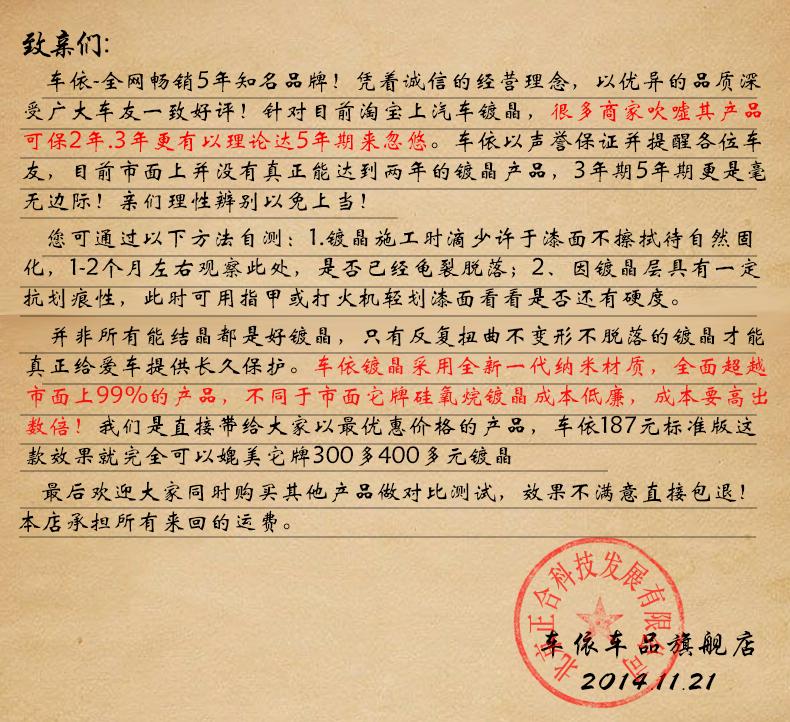 致亲们:
车依-全网畅销5年知名品牌！凭着诚信的经营理念，以优异的品质深
受广大车友一致好评！针对目前淘宝上汽车镀晶，很多商家吹嘘其产品
可保2年.3年更有以理论达5年期来忽悠。车依以声誉保证并提醒各位车
友，目前市面上并没有真正能达到两年的镀晶产品，3年期5年期更是毫
无边际！亲们理性辨别以免上当！
您可通过以下方法自测：1.镀晶施工时滴少许于漆面不擦拭待自然固
化，1-2个月左右观察此处，是否已经龟裂脱落；2、因镀晶层具有一定
抗划痕性，此时可用指甲或打火机轻划漆面看看是否还有硬度。
并非所有能结晶都是好镀晶，只有反复扭曲不变形不脱落的镀晶才能
真正给爱车提供长久保护。车依镀晶采用全新一代纳米材质，全面超越
市面上99%的产品，不同于市面它牌硅氧烷镀晶成本低廉，成本要高出
数倍！我们是直接带给大家以最优惠价格的产品，车依187元标准版这
款效果就完全可以媲美它牌300多400多元镀晶
最后欢迎大家同时购买其他产品做对比测试，效果不满意直接包退！
本店承担所有来回的运费。
北京正合科技发展有限公司
车依车品旗舰店
2014.11.21